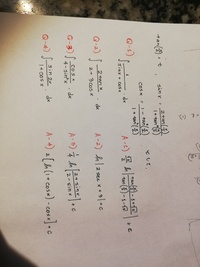 tan(x/2) = t
sin x = 2tan(x/2) / 1+tan²(x/2)
cos x = 1-tan²(x/2) / 1+tan²(x/2)
Q-1) ∫ 1 / sinx+cosx dx
A-1) √2/2 ln | tan(x/2)-1+√2 / tan(x/2)-1-√2 | + c
Q-2) ∫ tanx / 2+3cosx dx
A-2) ln | 2secx+3 | + c
Q-3) ∫ cosx / 4-sin²x . dx
A-3) 1/4 ln | 2+sinx / 2-sinx | + c
Q-4) ∫ sin2x / 1+cosx . dx
A-4) 2 [ ln(1+cosx) - cosx ] + c